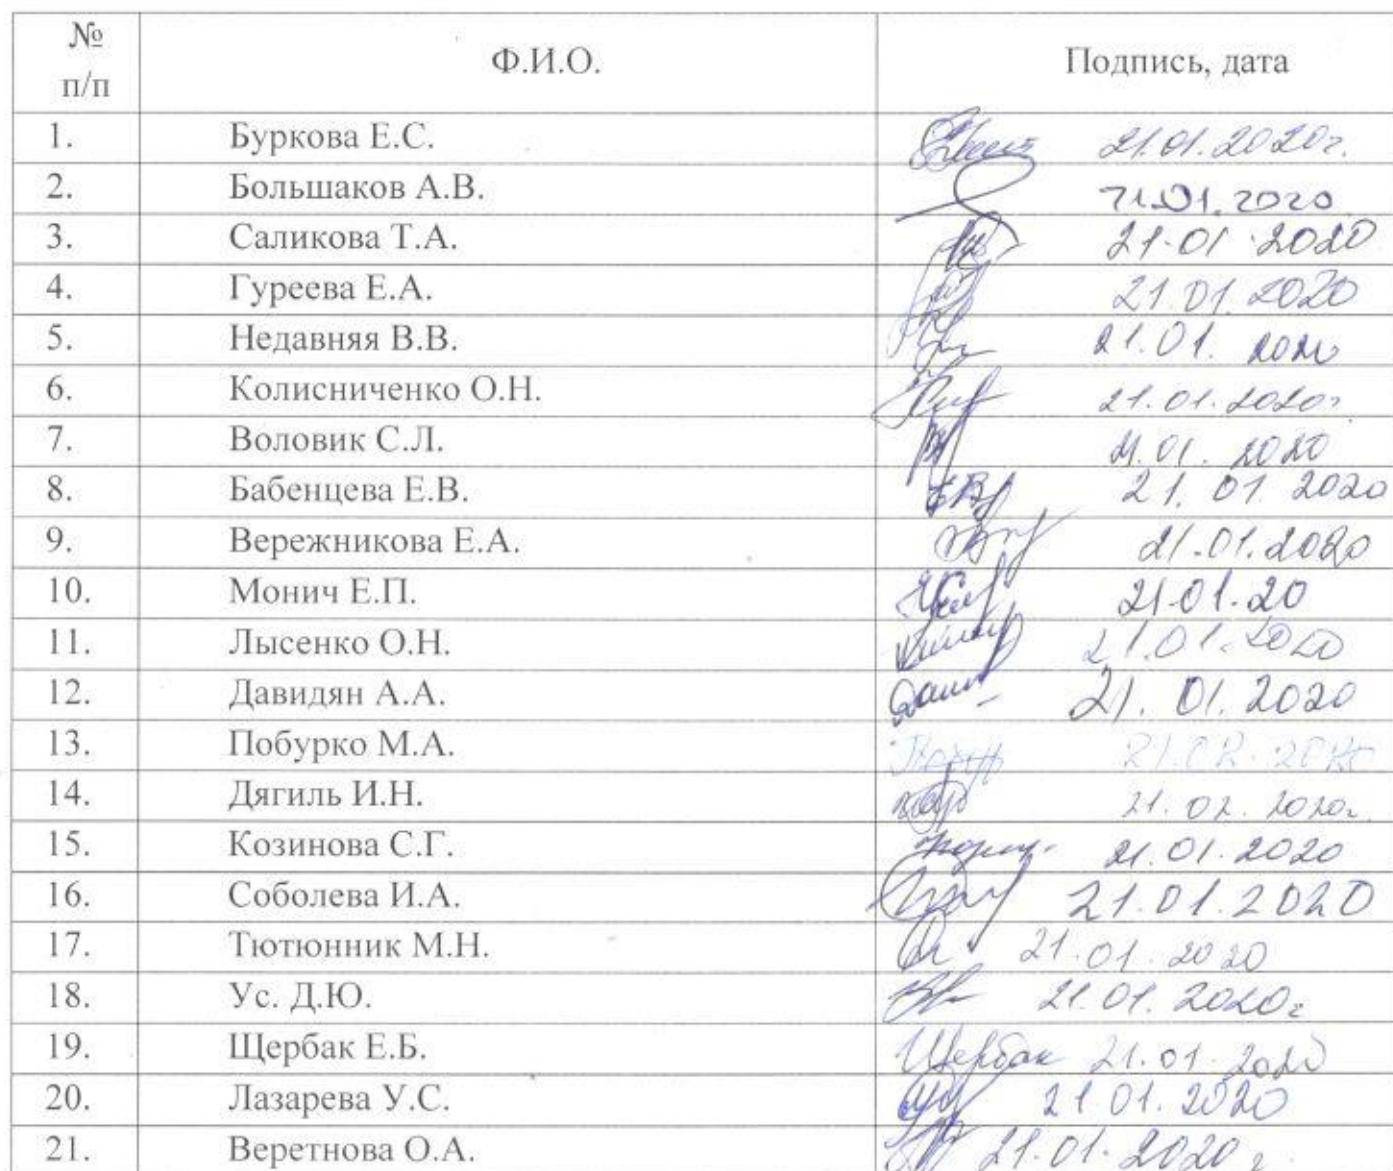 № п/п Ф.И.О. Подпись, дата
1. Буркова Е.С. 21.01.2020г.
2. Большаков А.В. 21.01.2020
3. Саликова Т.А. 21.01.2020
4. Гуреева Е.А. 21.01.2020
5. Недавняя В.В. 21.01.2020
6. Колисниченко О.Н. 21.01.2020г
7. Воловик С.Л. 21.01.2020
8. Бабенцева Е.В. 21.01.2020
9. Вережникова Е.А. 21.01.2020
10. Монич Е.П. 21.01.20
11. Лысенко О.Н. 21.01.2020
12. Давидян А.А. 21.01.2020
13. Побурко М.А.
14. Дягиль И.Н.
15. Козинова С.Г. 21.01.2020
16. Соболева И.А. 21.01.2020
17. Тютюнник М.Н. 21.01.2020
18. Ус. Д.Ю. 21.01.2020г
19. Щербак Е.Б. Щербак 21.01.2020
20. Лазарева У.С. 21.01.2020
21. Веретнова О.А. 21.01.2020г.